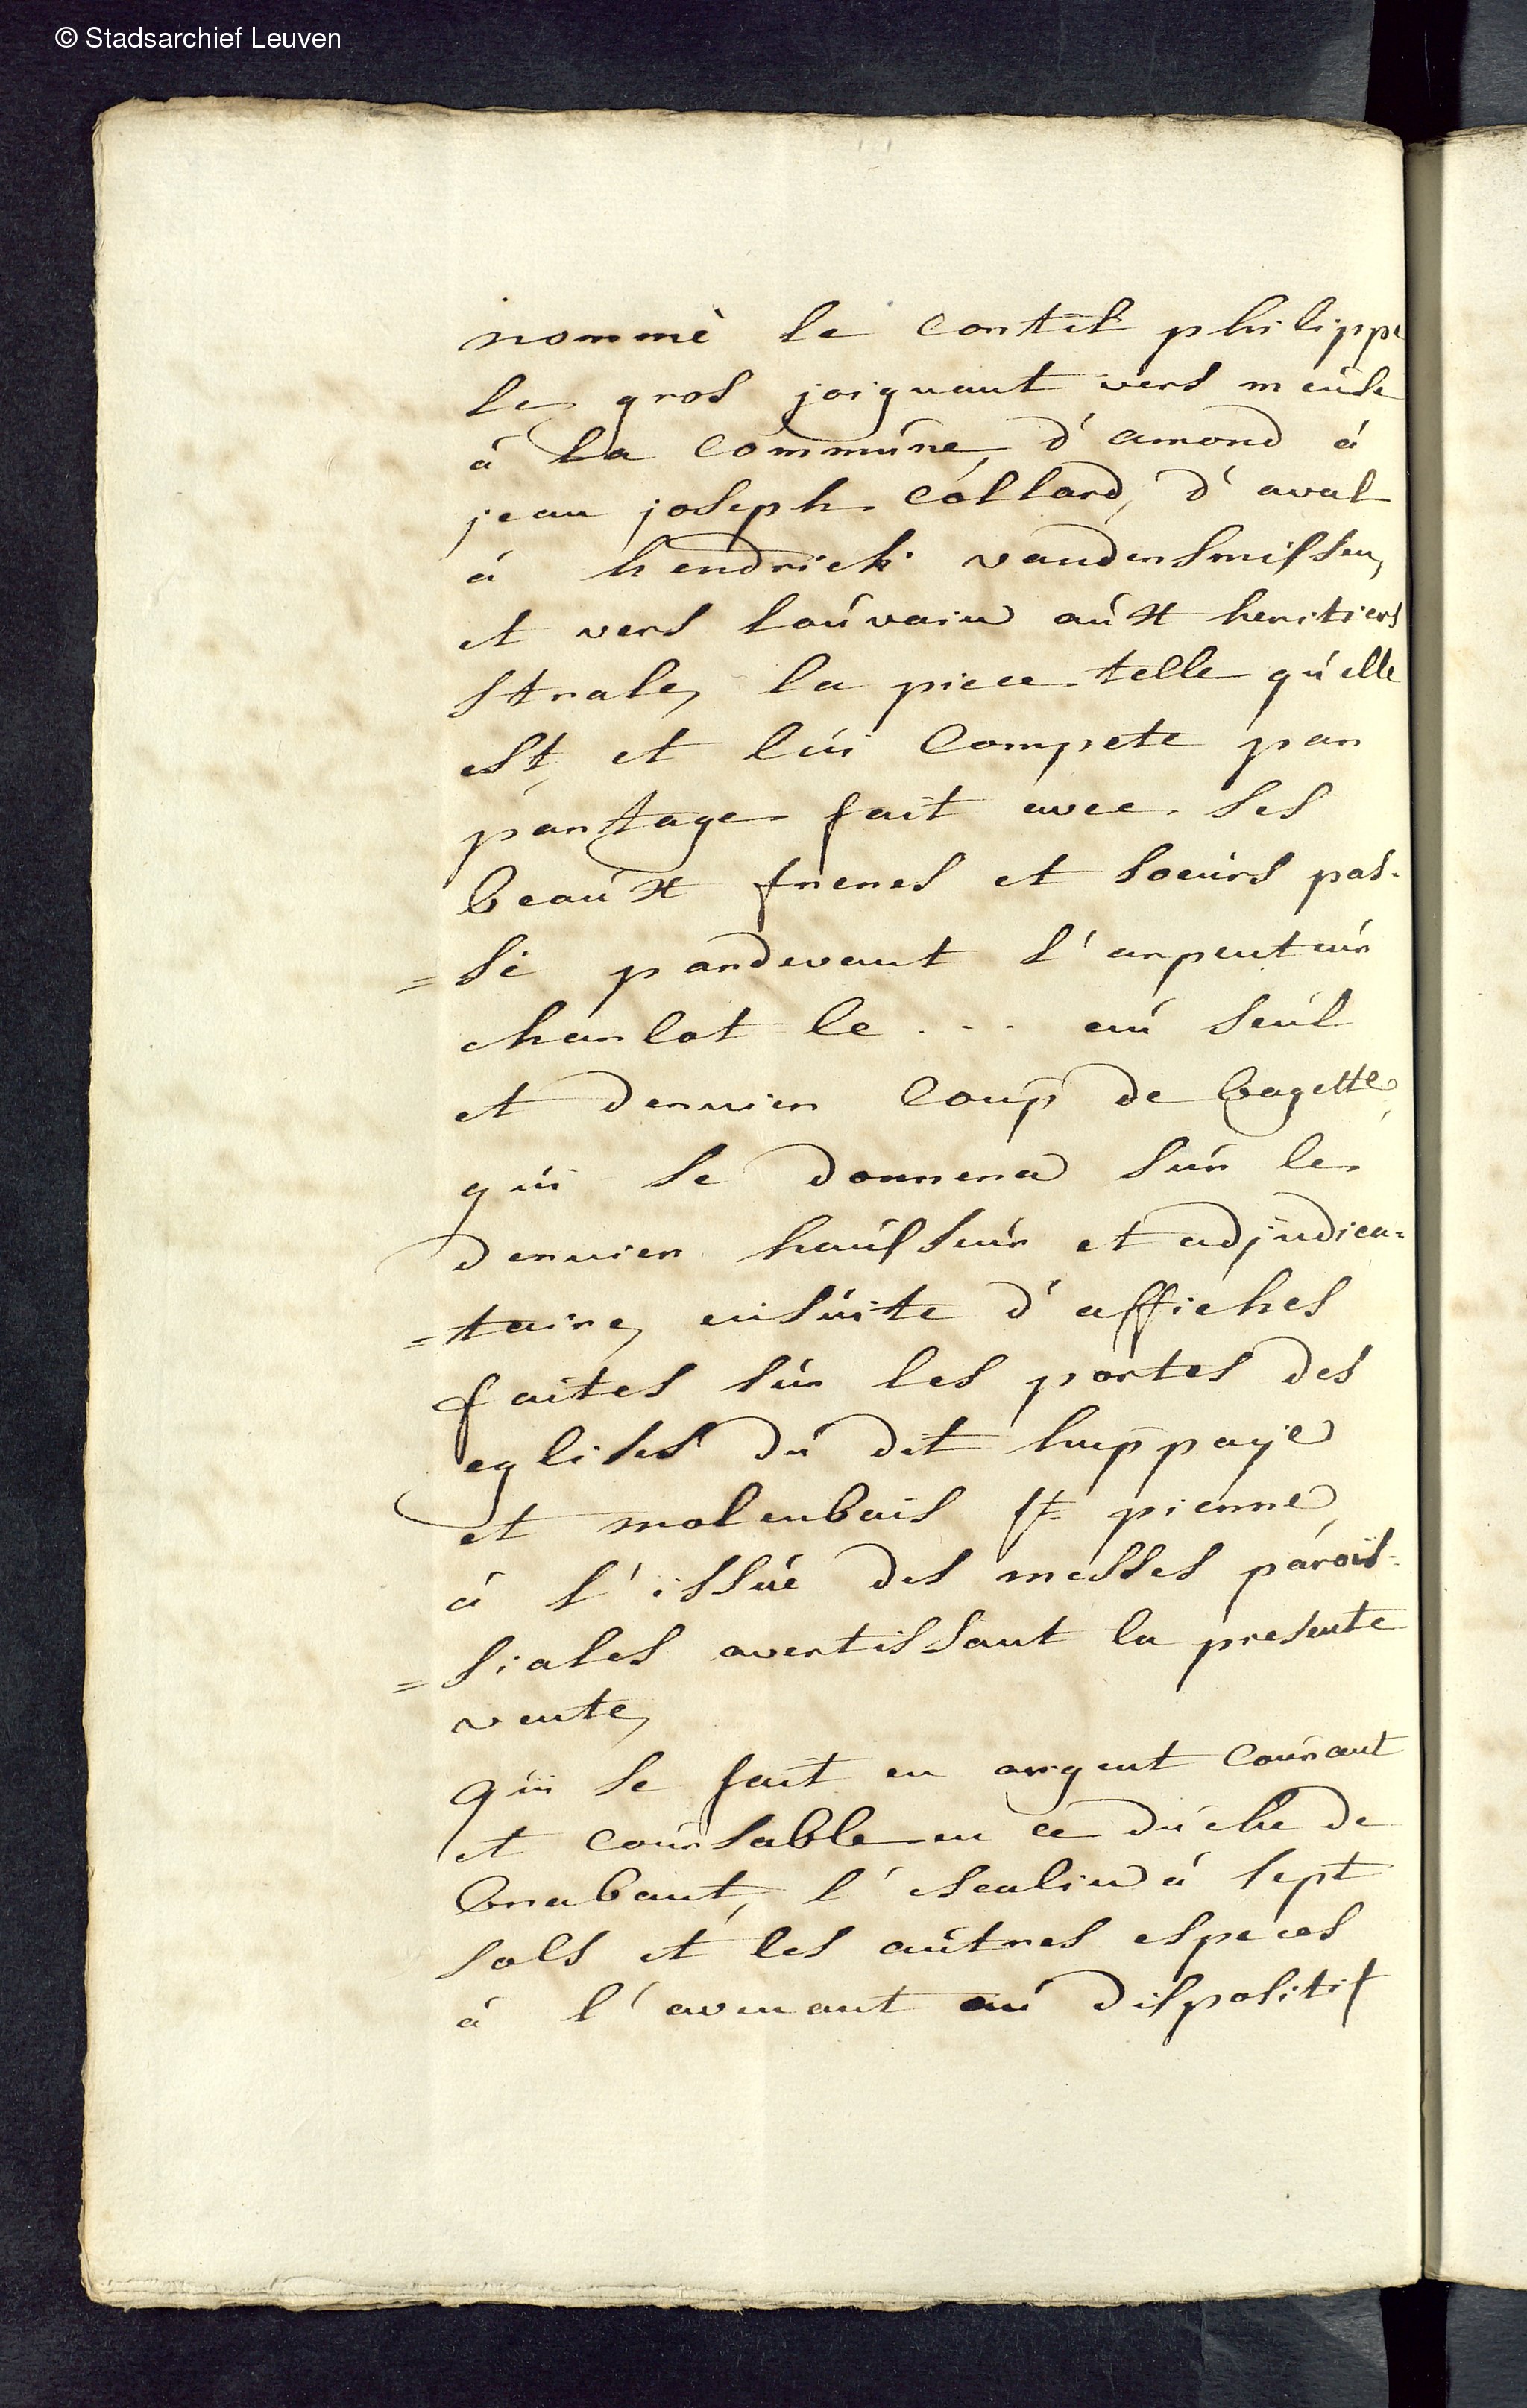 © Stadsarchief Leuven
nommé le Cortil philippe
le gros joignant vers meuse
à la Commune, d'amond à
jean joseph Collard, d'aval
à hendrick vandersmissen,
et vers louvain aux heritiers
strale, la piece telle qu'elle
est, et lui Compete par
partage fait avec ses
beaux freres et soeurs pas-
=sé pardevant l'arpenteur
charlot le ... au seul
et dernier Coup de bagette,
qui se donnera sur le
dernier hausseur et adjudica=
=taire, ensuite d'affiches
faites sur les portes des
eglises du dit huppaye
et molenbais St. pierre,
à l'issue des messes parois-
=siales avertissant la presente
vente,
qui se fait en argent Courant
et Coursable en ce duché de
brabant, l'escalin à sept
sols et les autres especes
à l'avenant au dispositif